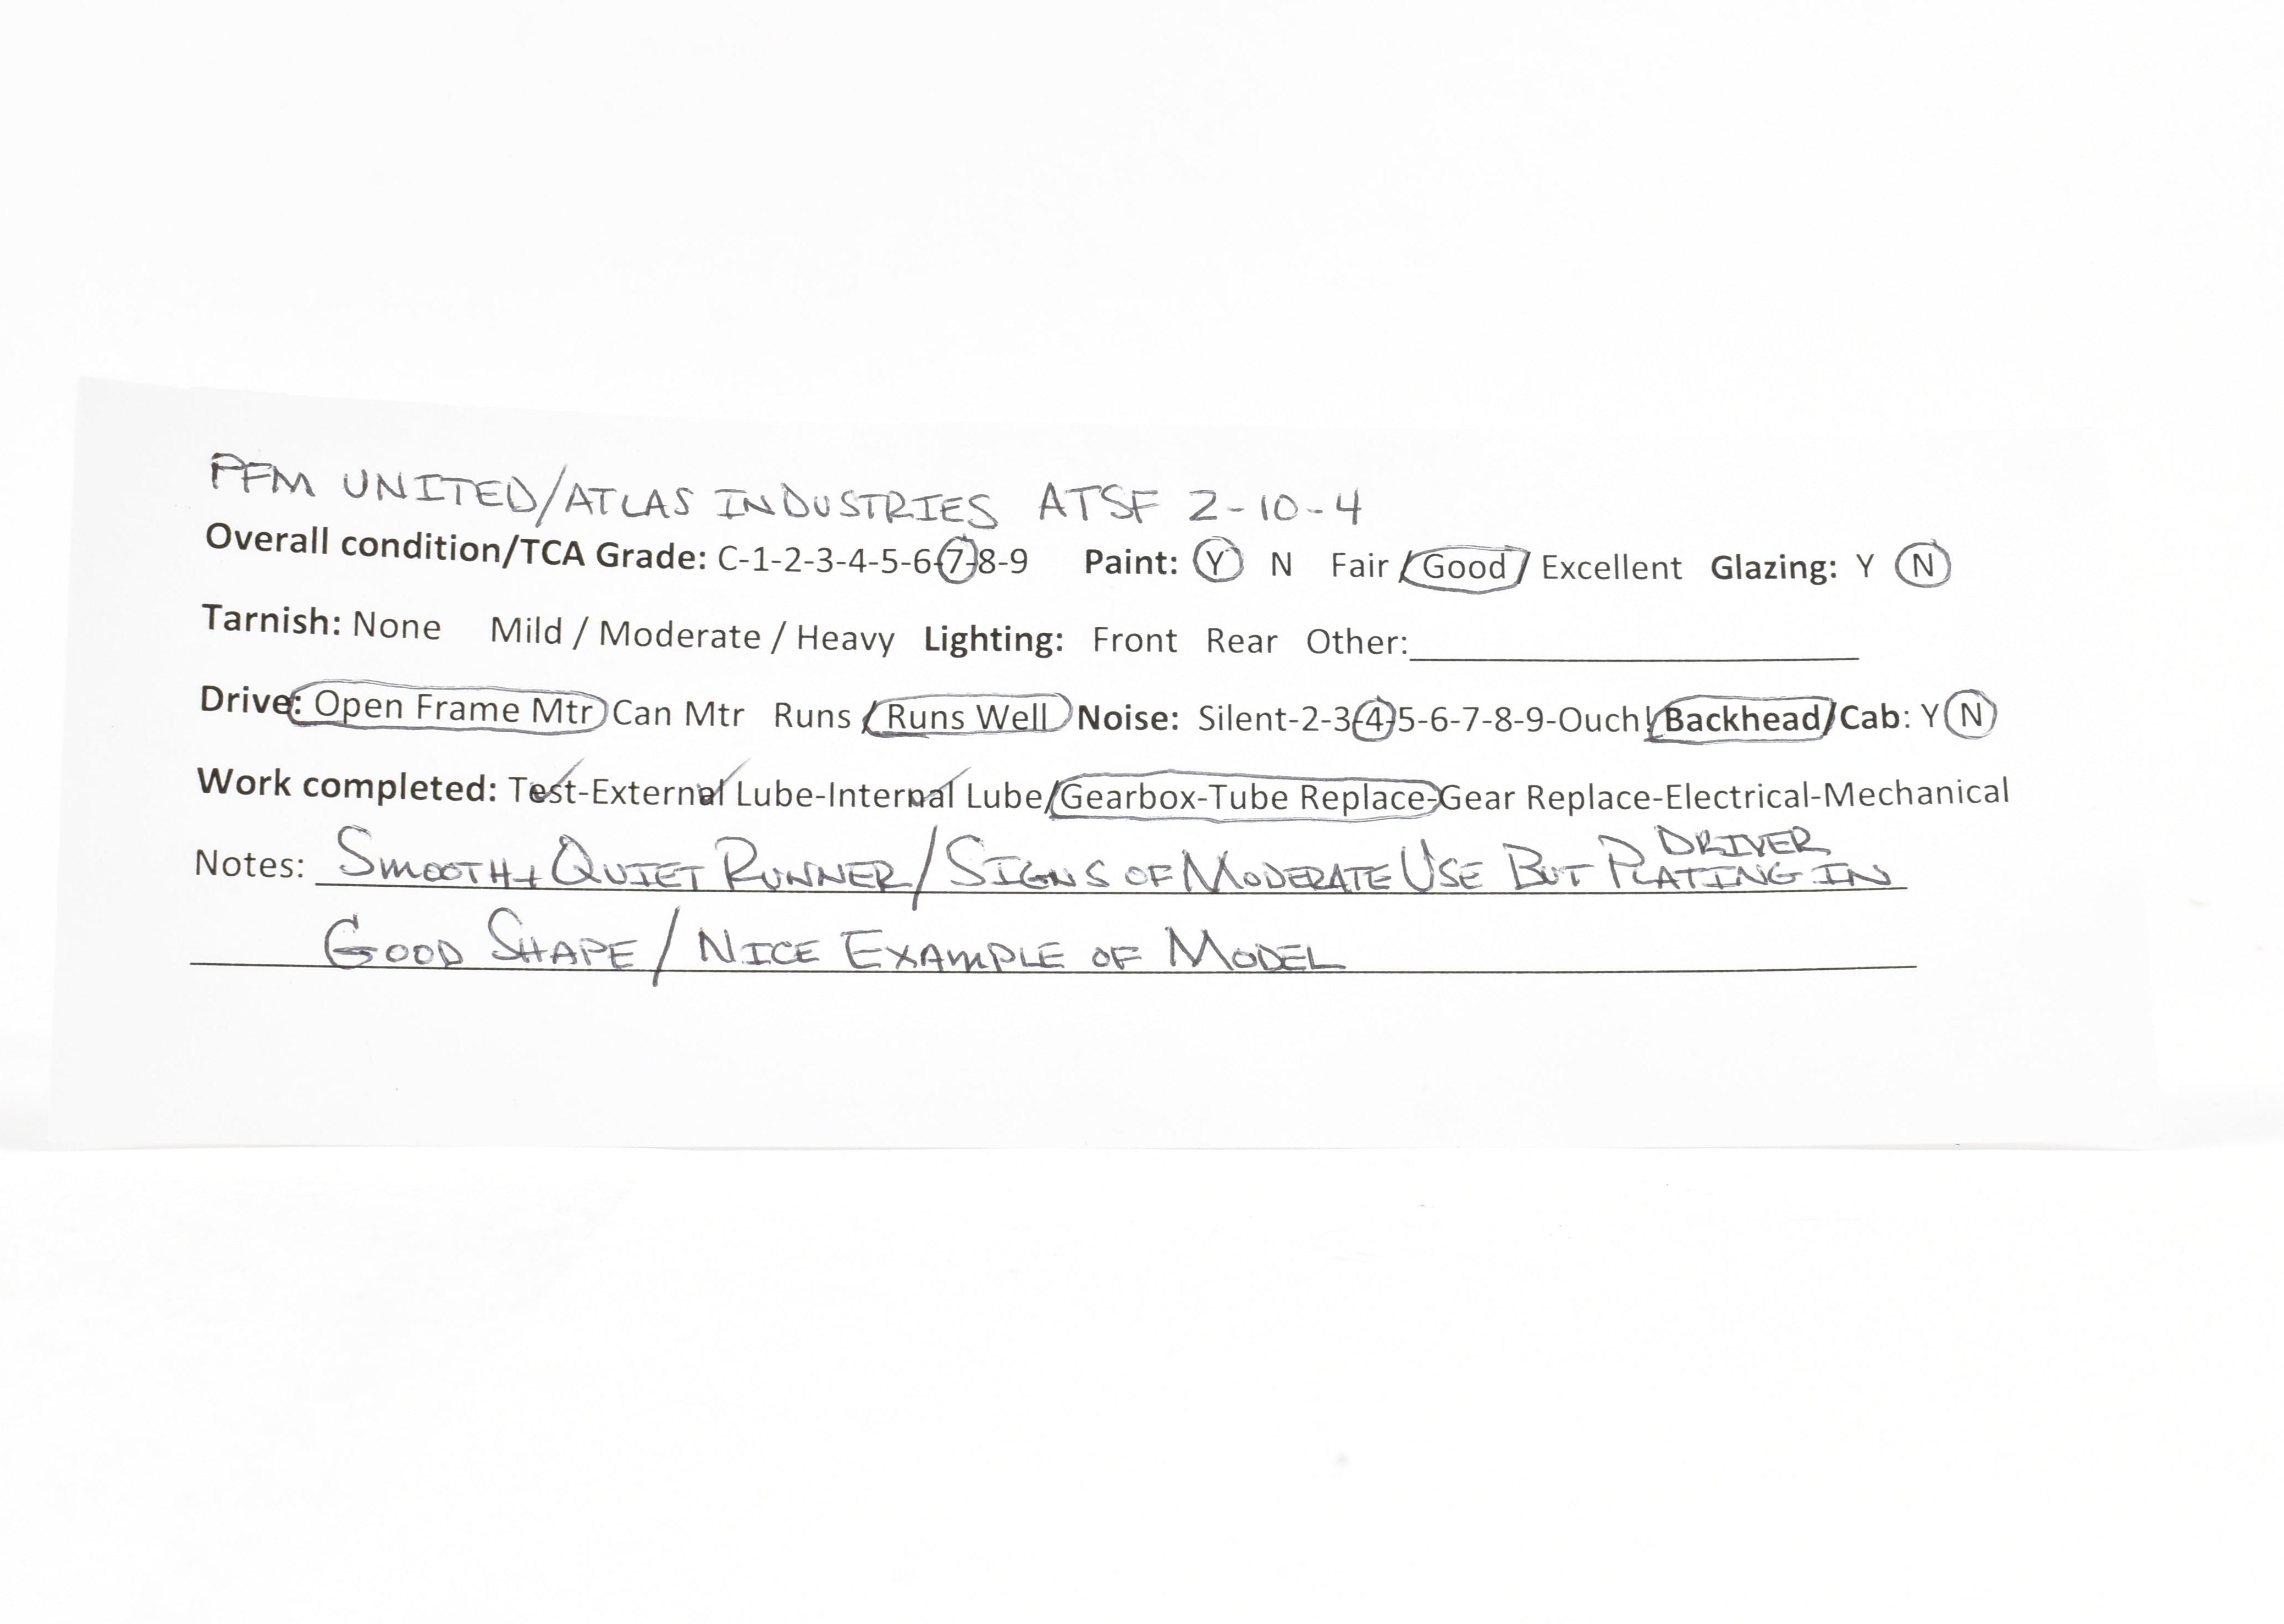 PFM UNITED/ATLAS INDUSTRIES ATSF 2-10-4
Overall condition/TCA Grade: C-1-2-3-4-5-6-7-8-9 Paint: Y N Fair / Good / Excellent Glazing: Y N
Tarnish: None Mild / Moderate / Heavy Lighting: Front Rear Other:
Drive: Open Frame Mtr Can Mtr Runs / Runs Well Noise: Silent-2-3-4-5-6-7-8-9-Ouch! Backhead/Cab: Y N
Work completed: Test-External Lube-Internal Lube/Gearbox-Tube Replace-Gear Replace-Electrical-Mechanical
DRIVER
Notes: SMOOTH + QUIET RUNNER / SIGNS OF MODERATE USE BUT PLATING IN
GOOD SHAPE / NICE EXAMPLE OF MODEL